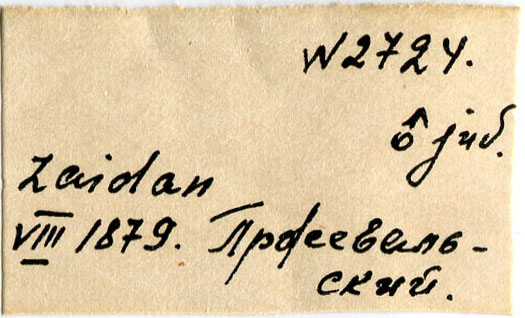 N2724.
♂ juv.
Zaidan
VIII 1879. Пржеваль-
ский.